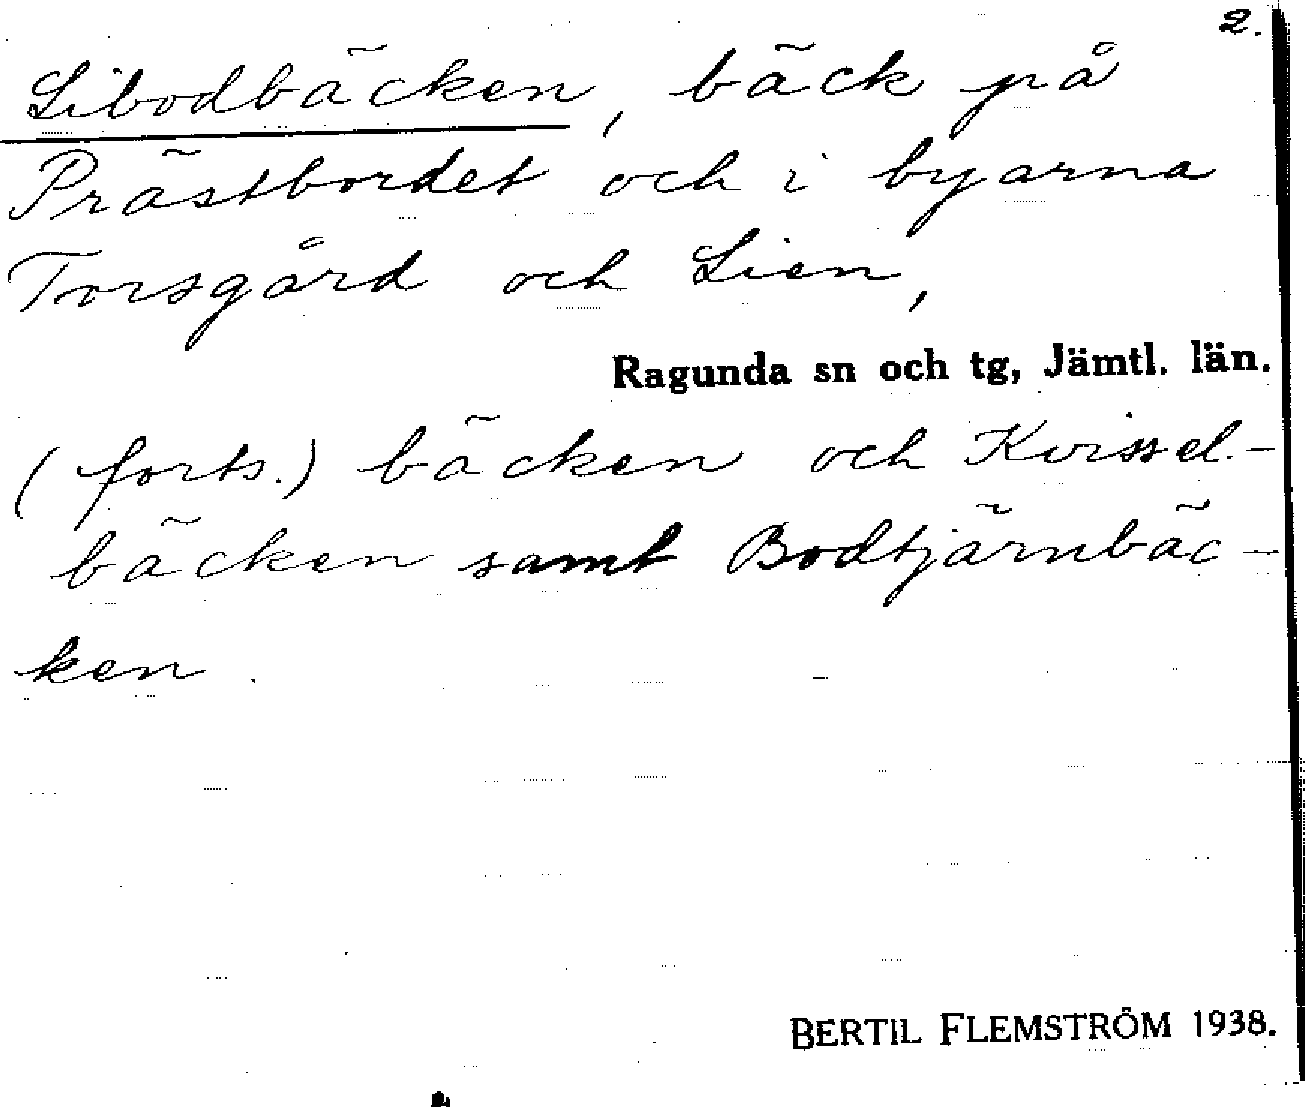 2.
Libodbäcken, bäck på
Prästbordet och i byarna
Torsgård och Lien,
Ragunda sn och tg, Jämtl. län.
(forts.) bäcken och Kvissel-
bäcken samt Bodtjärnbäc-
ken.
BERTIL FLEMSTRÖM 1938.